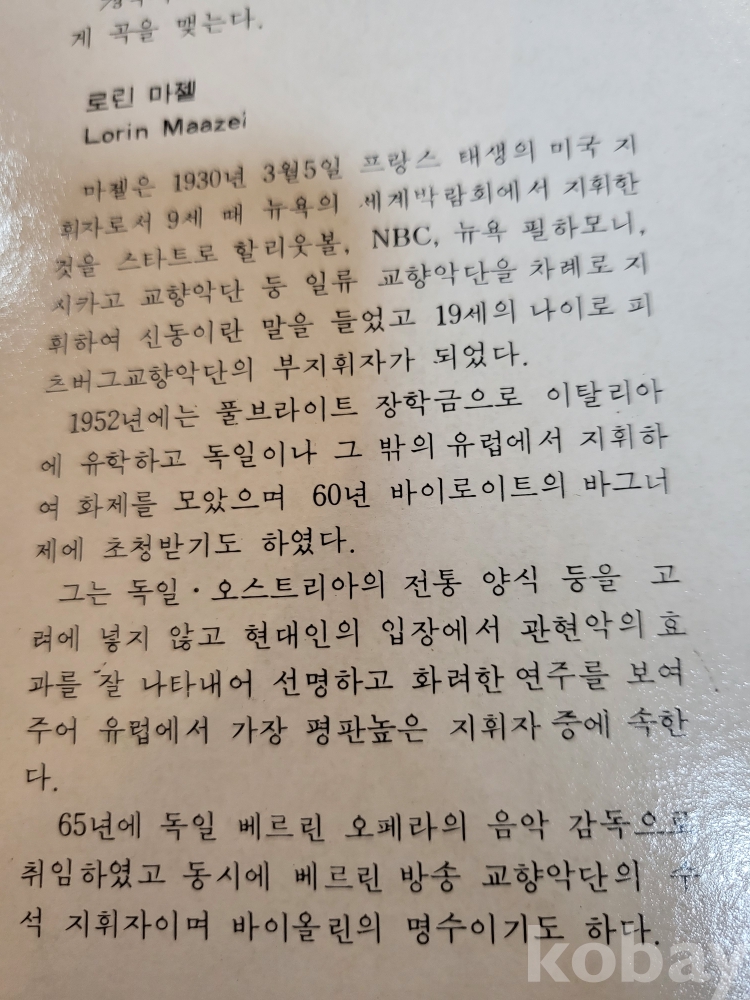 게 곡을 맺는다.
로린 마젤
Lorin Maazel
마젤은 1930년 3월5일 프랑스 태생의 미국 지
휘자로서 9세 때 뉴욕의 세계박람회에서 지휘한
것을 스타트로 할리웃볼, NBC, 뉴욕 필하모니,
시카고 교향악단 등 일류 교향악단을 차례로 지
휘하여 신동이란 말을 들었고 19세의 나이로 피
츠버그교향악단의 부지휘자가 되었다.
1952년에는 풀브라이트 장학금으로 이탈리아
에 유학하고 독일이나 그 밖의 유럽에서 지휘하
여 화제를 모았으며 60년 바이로이트의 바그너
제에 초청받기도 하였다.
그는 독일·오스트리아의 전통 양식 등을 고
려에 넣지 않고 현대인의 입장에서 관현악의 효
과를 잘 나타내어 선명하고 화려한 연주를 보여
주어 유럽에서 가장 평판높은 지휘자 중에 속한
다.
65년에 독일 베르린 오페라의 음악 감독으로
취임하였고 동시에 베르린 방송 교향악단의 수
석 지휘자이며 바이올린의 명수이기도 하다.
kobay